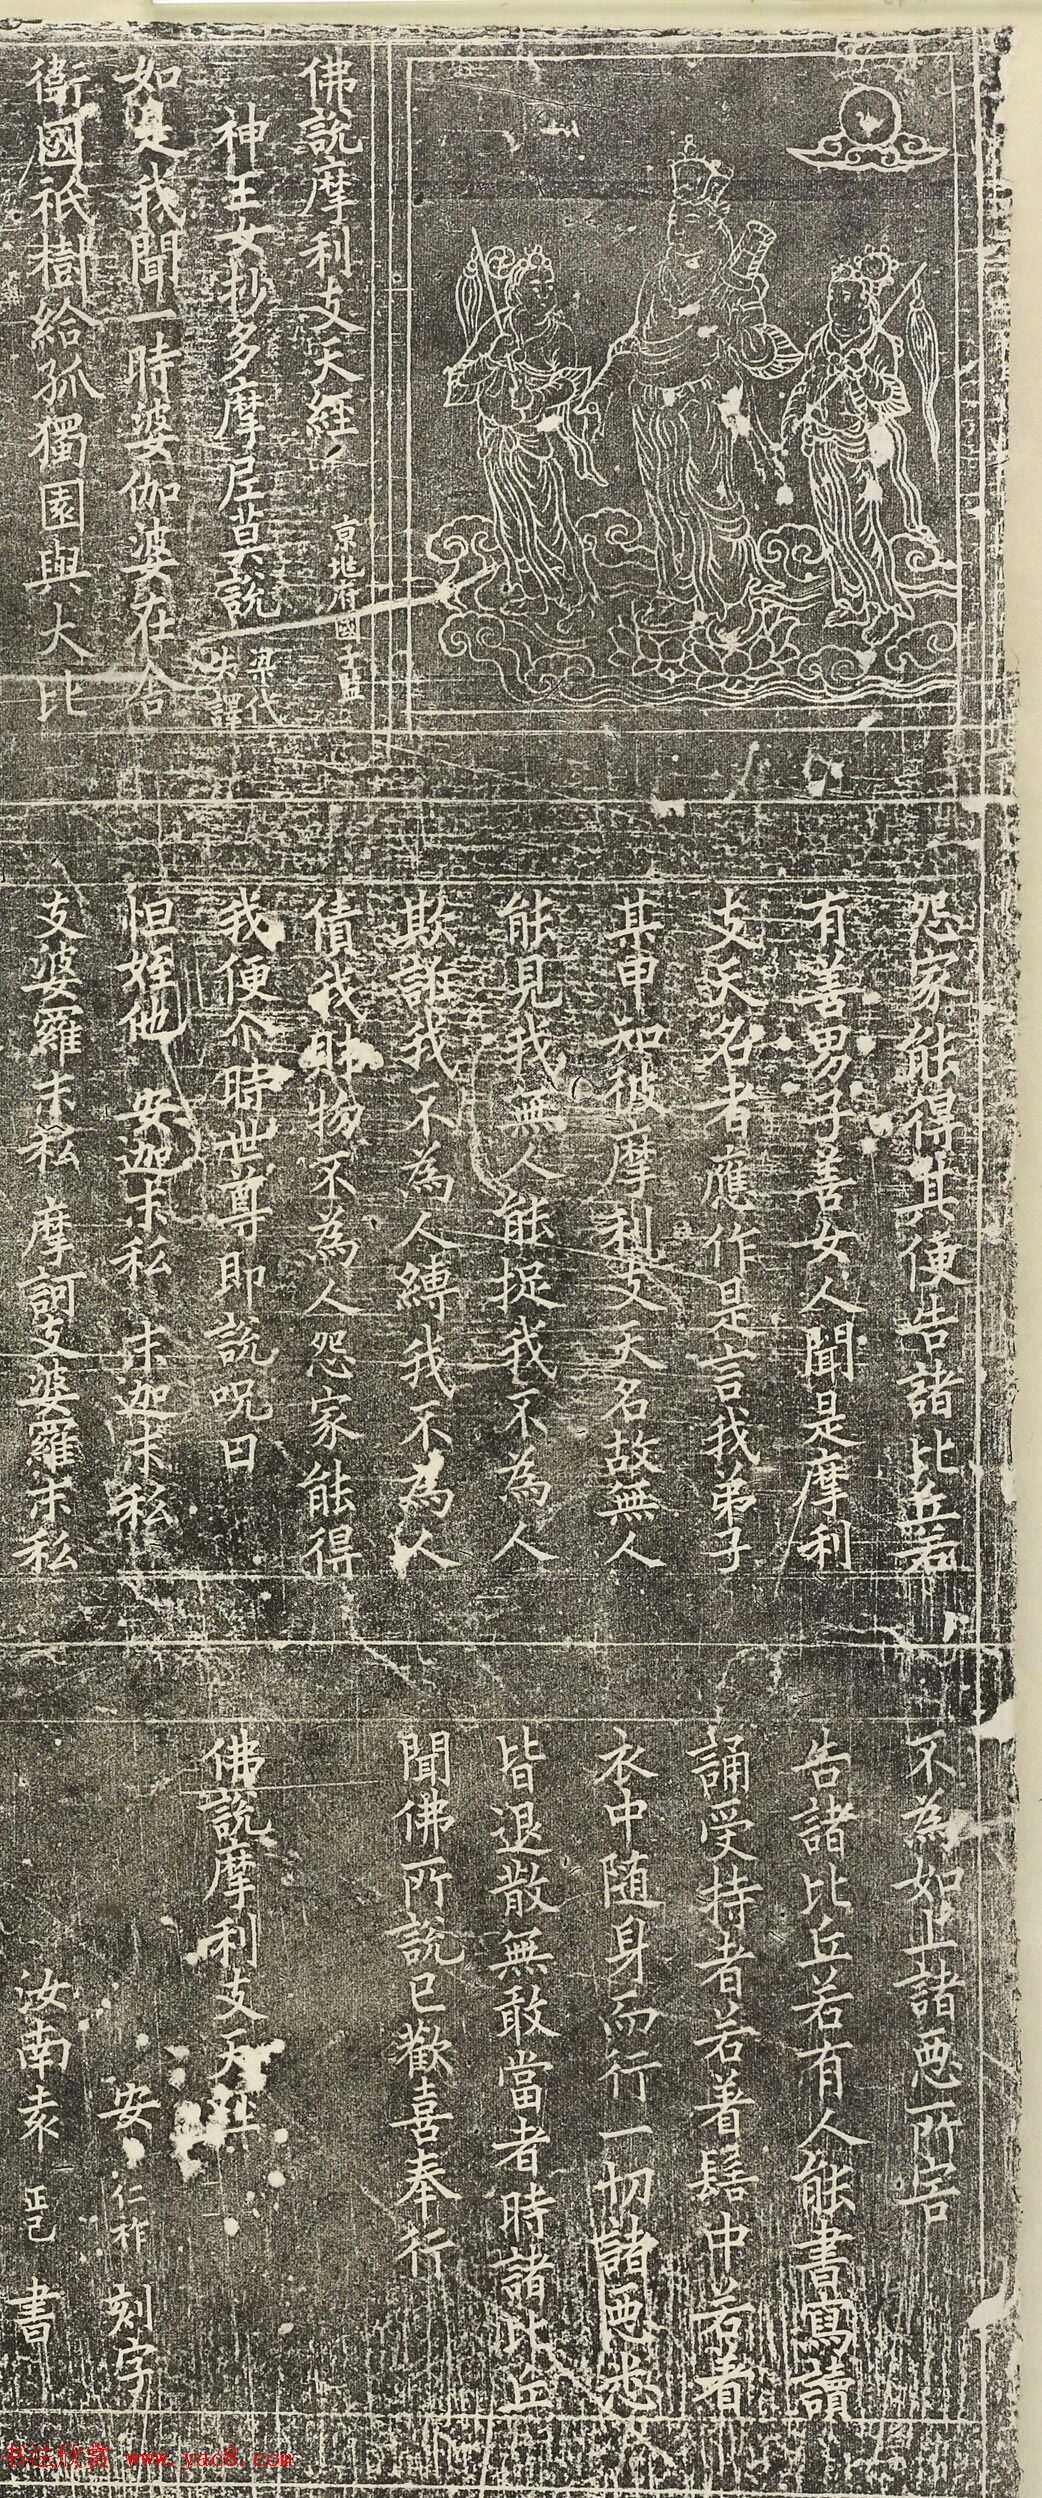 佛說摩利支天經 京兆府國子監
神王女抄多摩尼莫說 梁代失譯
如是我聞一時婆伽婆在舍
衛國祇樹給孤獨園與大比
怨家能得其便告諸比丘若
有善男子善女人聞是摩利
支天名者應作是言我弟子
某甲知彼摩利支天名故無人
能見我無人能捉我不為人
欺誑我不為人縛我不為人
債我財物不為人怨家能得
我便尒時世尊即說呪曰
怛姪他 安迦末私 末迦末私
支婆羅末私 摩訶支婆羅末私
不為如上諸惡所害
告諸比丘若有人能書寫讀
誦受持者若著髻中若著
衣中随身而行一切諸惡悉
皆退散無敢當者時諸比丘
聞佛所說已歡喜奉行
佛說摩利支天經
安仁祚 刻字
汝南袁正己 書
书法欣赏 www.yac8.com